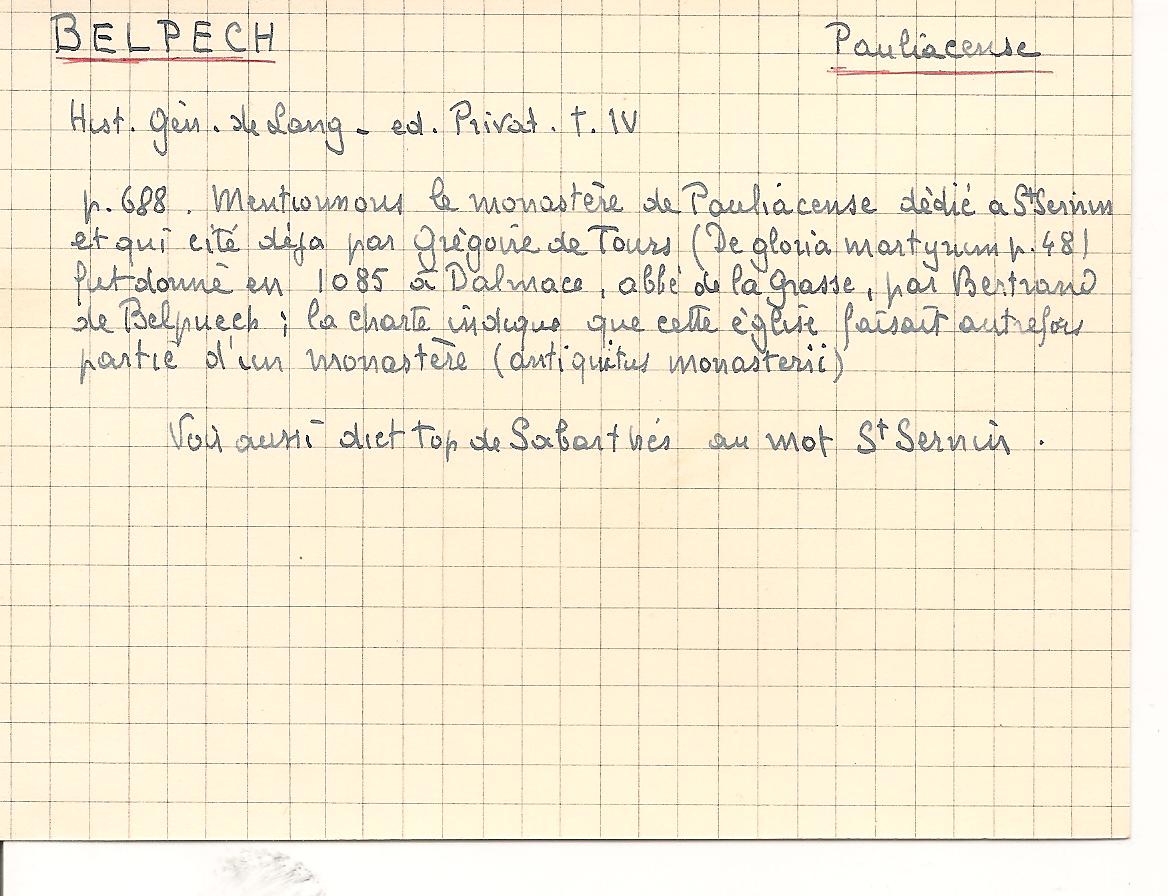 BELPECH
Pauliacense
Hist. Gén. de Lang - ed. Privat. t. IV
p. 688. Mentionnons le monastère de Pauliacense dédié a St Sernin
et qui cité déja par Grégoire de Tours (De gloria martyrum p. 48)
fut donné en 1085 à Dalmace, abbé de la Grasse, par Bertrand
de Belpuech ; la charte indique que cette église faisait autrefois
partie d'un monastère (antiquitus monasterii)
Voir aussi dict top de Sabarthés au mot St Sernin.